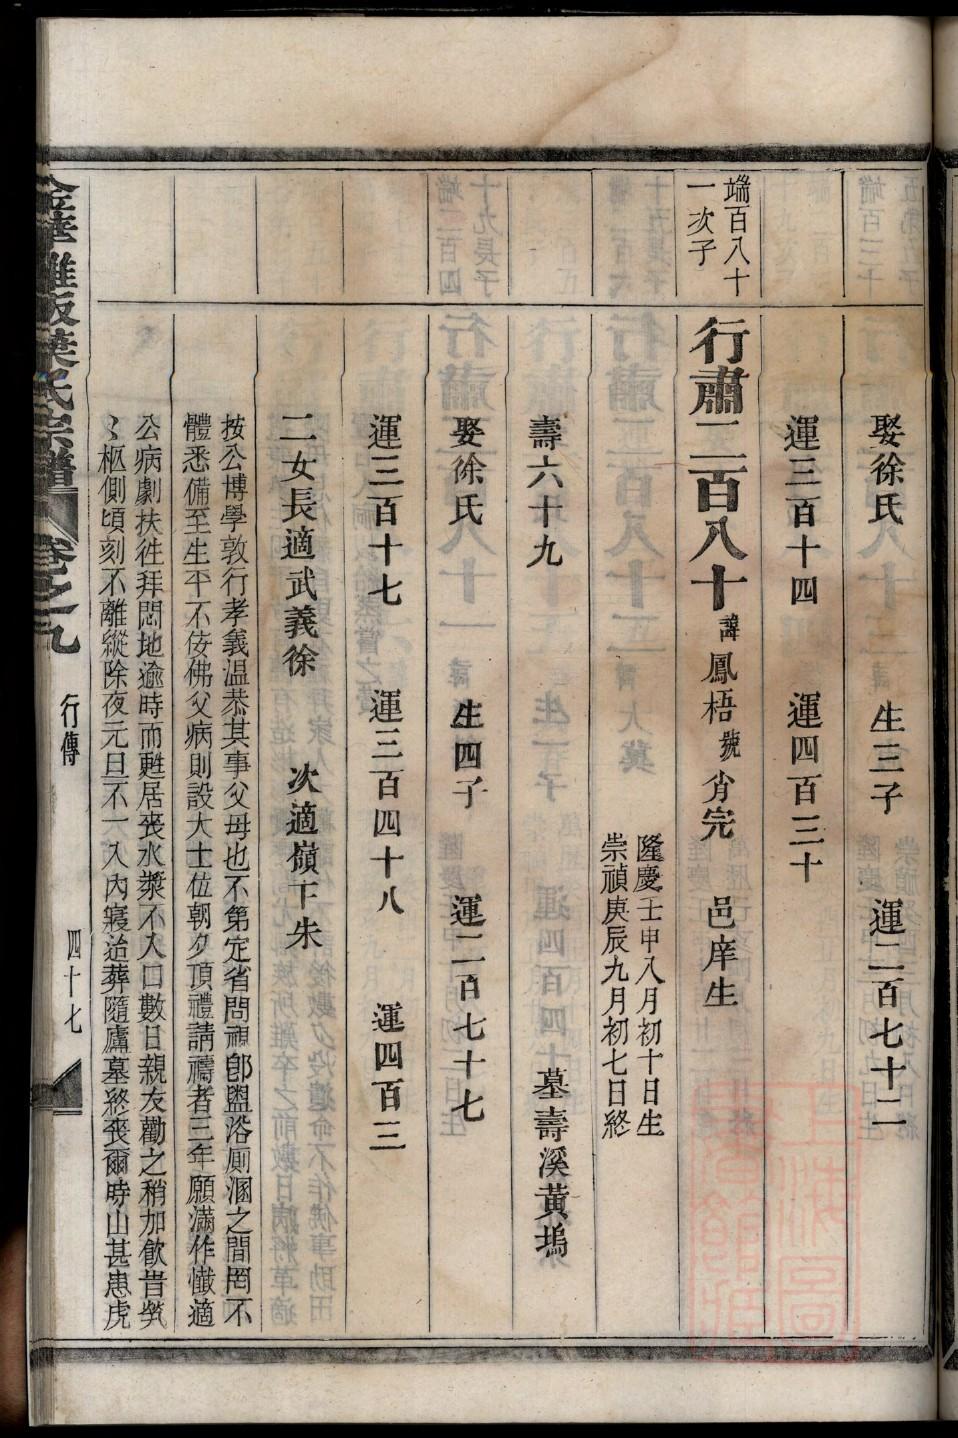 娶徐氏 生三子 運二百七十二
運三百十四 運四百三十
端百八十
一次子
行肅二百八十 諱鳳梧號肖完 邑庠生
隆慶壬申八月初十日生
崇禎庚辰九月初七日終
壽六十九 墓壽溪黃塢
娶徐氏 生四子 運二百七十七
運三百十七 運三百四十八 運四百三
二女長適武義徐 次適嶺下朱
按公博學敦行孝義溫恭其事父母也不第定省問視卽盥浴厠溷之間罔不
體悉備至生平不佞佛父病則設大士位朝夕頂禮請禱者三年願滿作懺適
公病劇扶徃拜悶地逾時而甦居喪水漿不入口數日親友勸之稍加飮㫺煢
〻柩側頃刻不離縱除夜元旦不一入內寢治葬隨廬墓終喪爾時山甚患虎
宗譜 卷之九 行傳 四十七